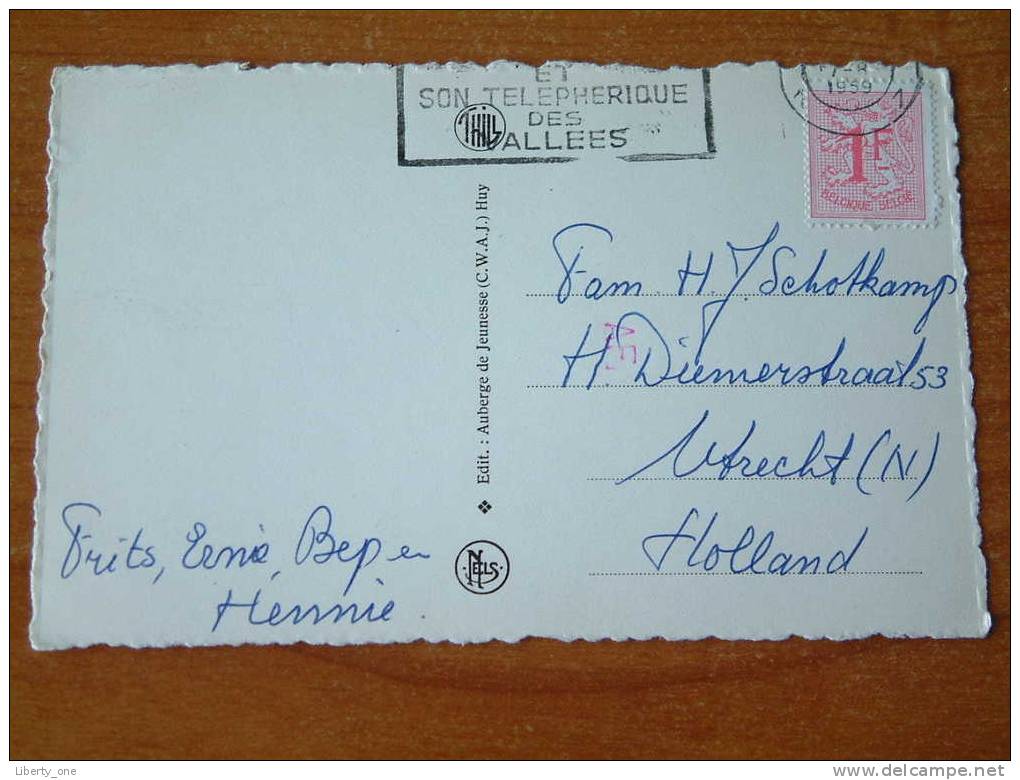 ET
SON TELEPHERIQUE
DES
VALLEES
THILL
1959
1F
BELGIQUE BELGIË
Edit. : Auberge de Jeunesse (C.W.A.J.) Huy
Fam. H. J Schotkamp
H. Diemerstraat 53
Utrecht (N)
Holland
Frits, Ernie, Bep en
Hennie.
NELS
Liberty_one
www.delcampe.net